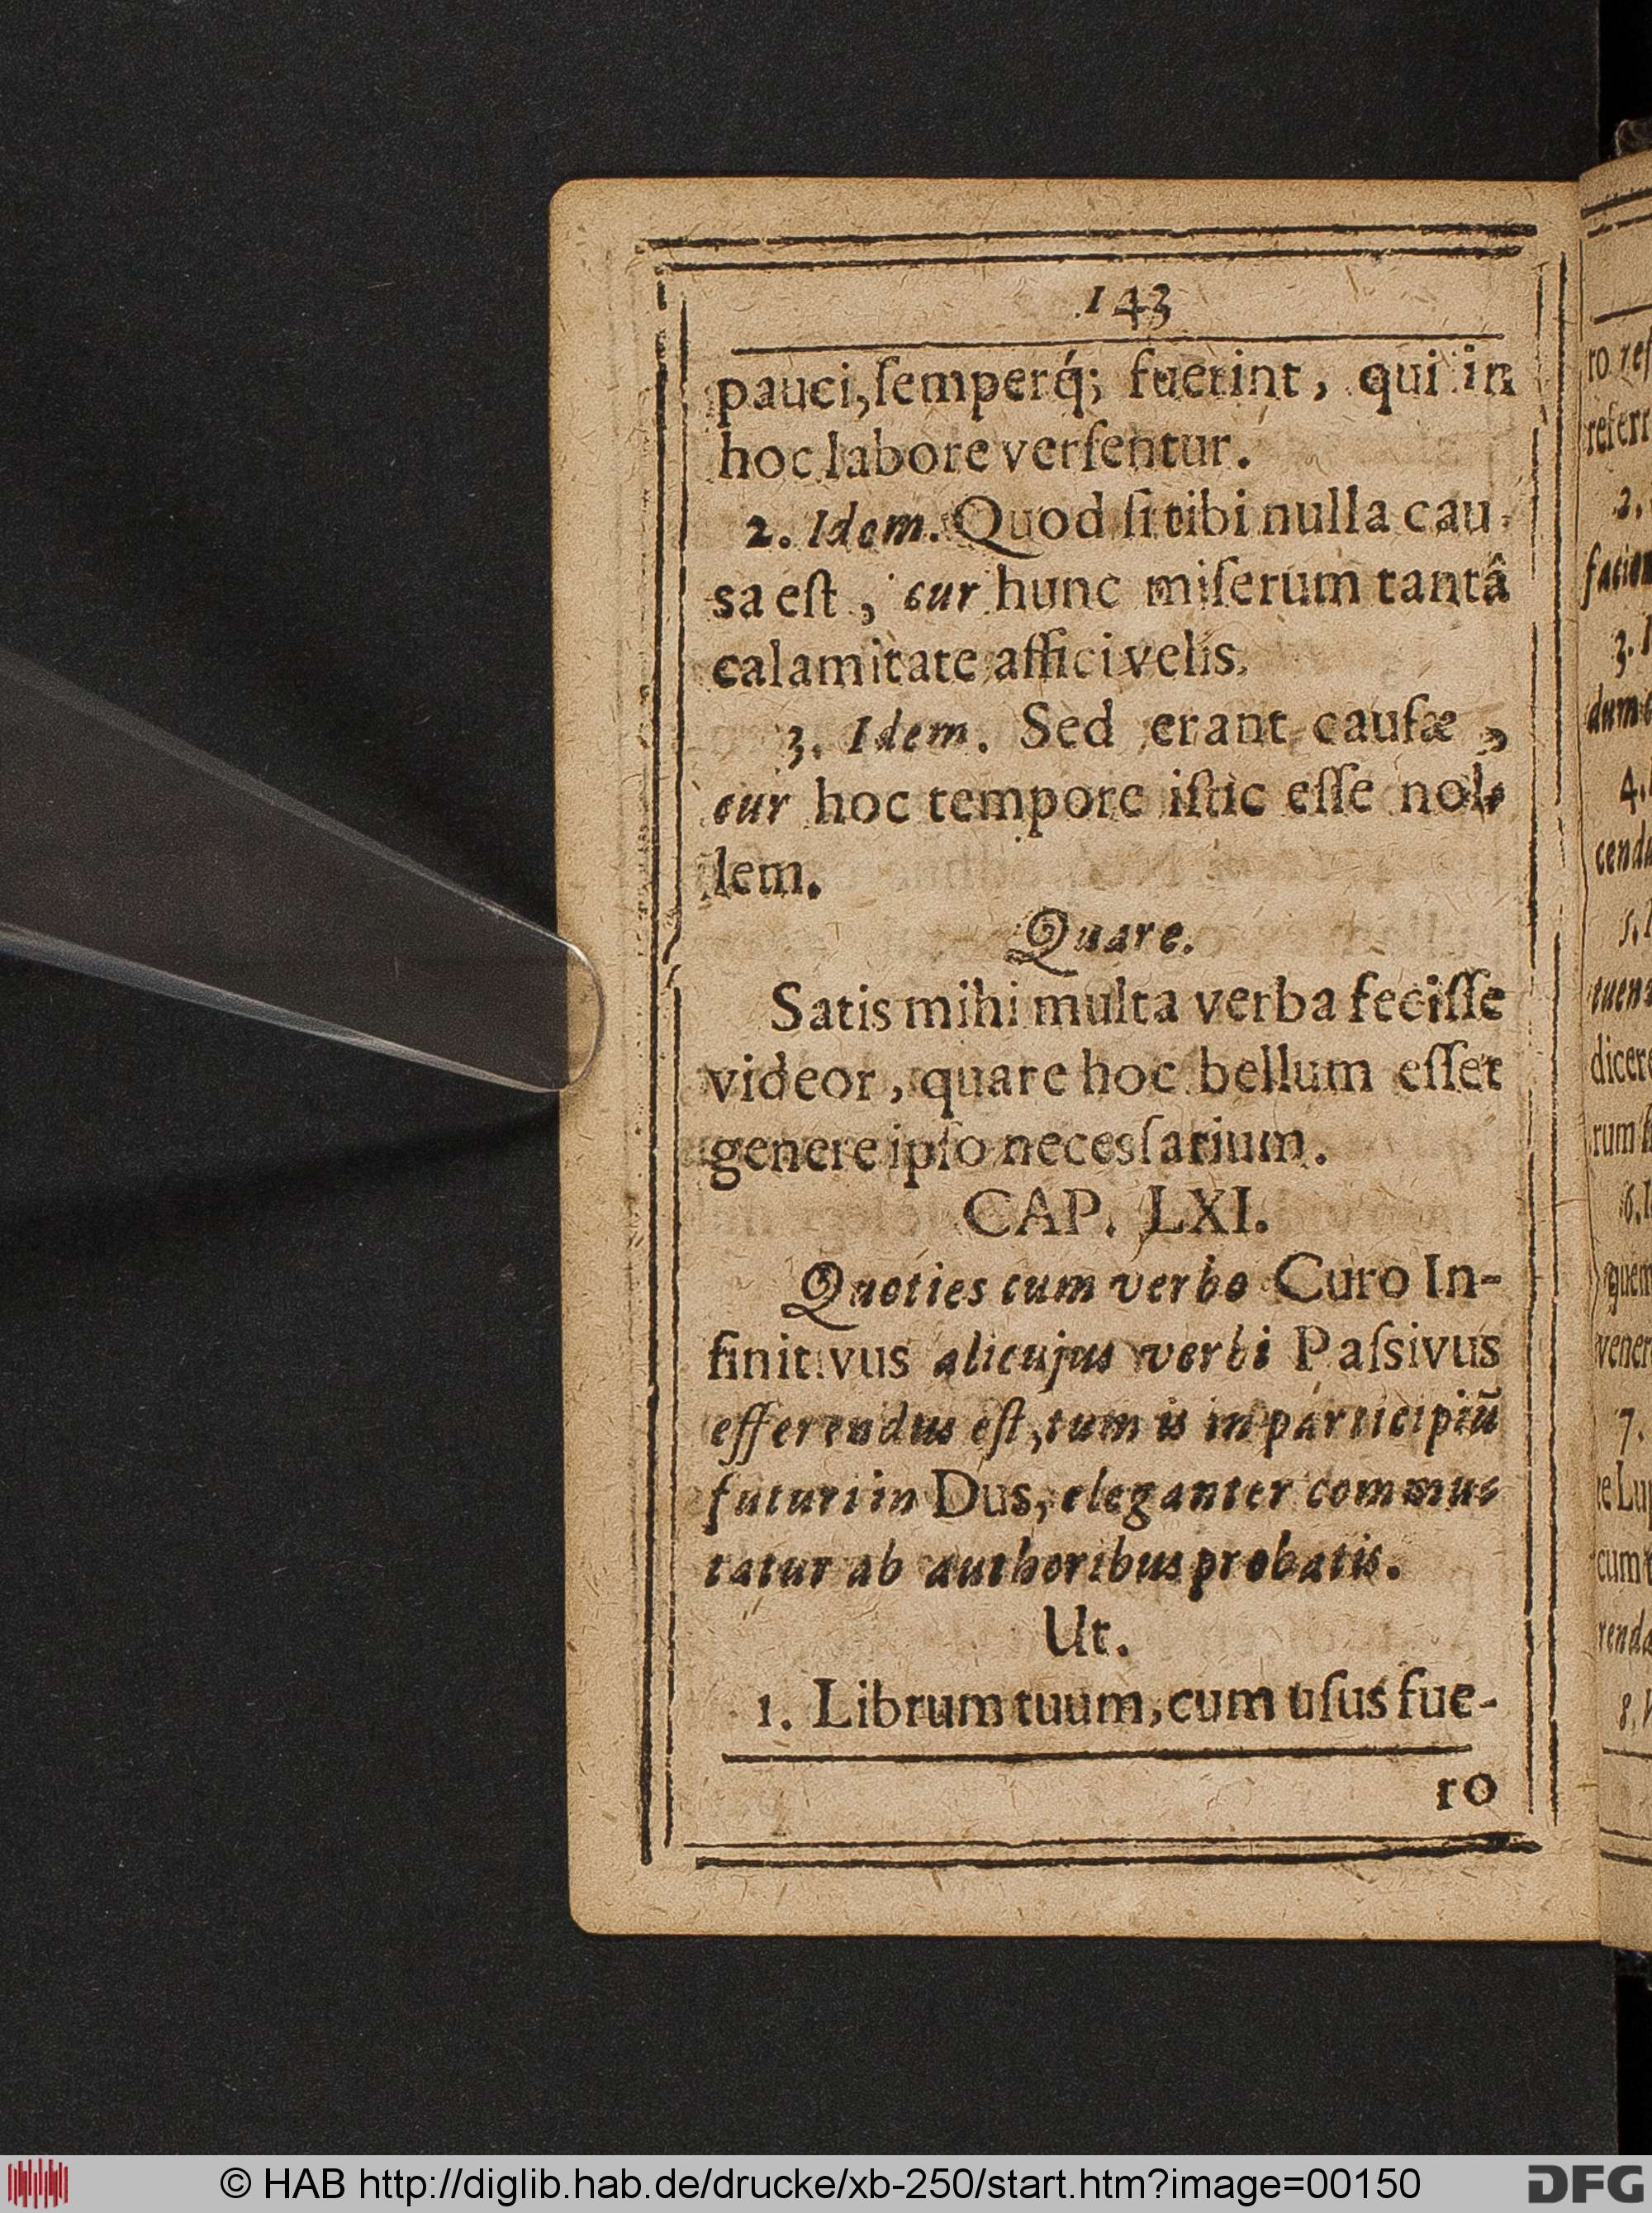 143
pauci,ſemperq́; fuerint, qui in
hoc labore verſentur.
2. Idem. Quod ſi tibi nulla cau-
sa eſt, cur hunc miſerum tantâ
calamitate affici velis.
3. Idem. Sed erant cauſæ,
cur hoc tempore iſtic eſſe nol-
lem.
Quare.
Satis mihi multa verba feciſſe
videor, quare hoc bellum eſſet
genere ipſo necesſarium.
CAP. LXI.
Quoties cum verbo Curo In-
finitivus alicujus verbi Paſsivus
efferendus eſt, tum is in participiũ
futuri in Dus, eleganter commu-
tatur ab authoribus probatis.
Ut.
1. Librum tuum, cum uſus fue-
ro
ro reſ
referr
2.
3. I
4.
cenda
5. I
dicere
6. I
quem
vener
7.
cum
renda
8.
© HAB http://diglib.hab.de/drucke/xb-250/start.htm?image=00150
DFG